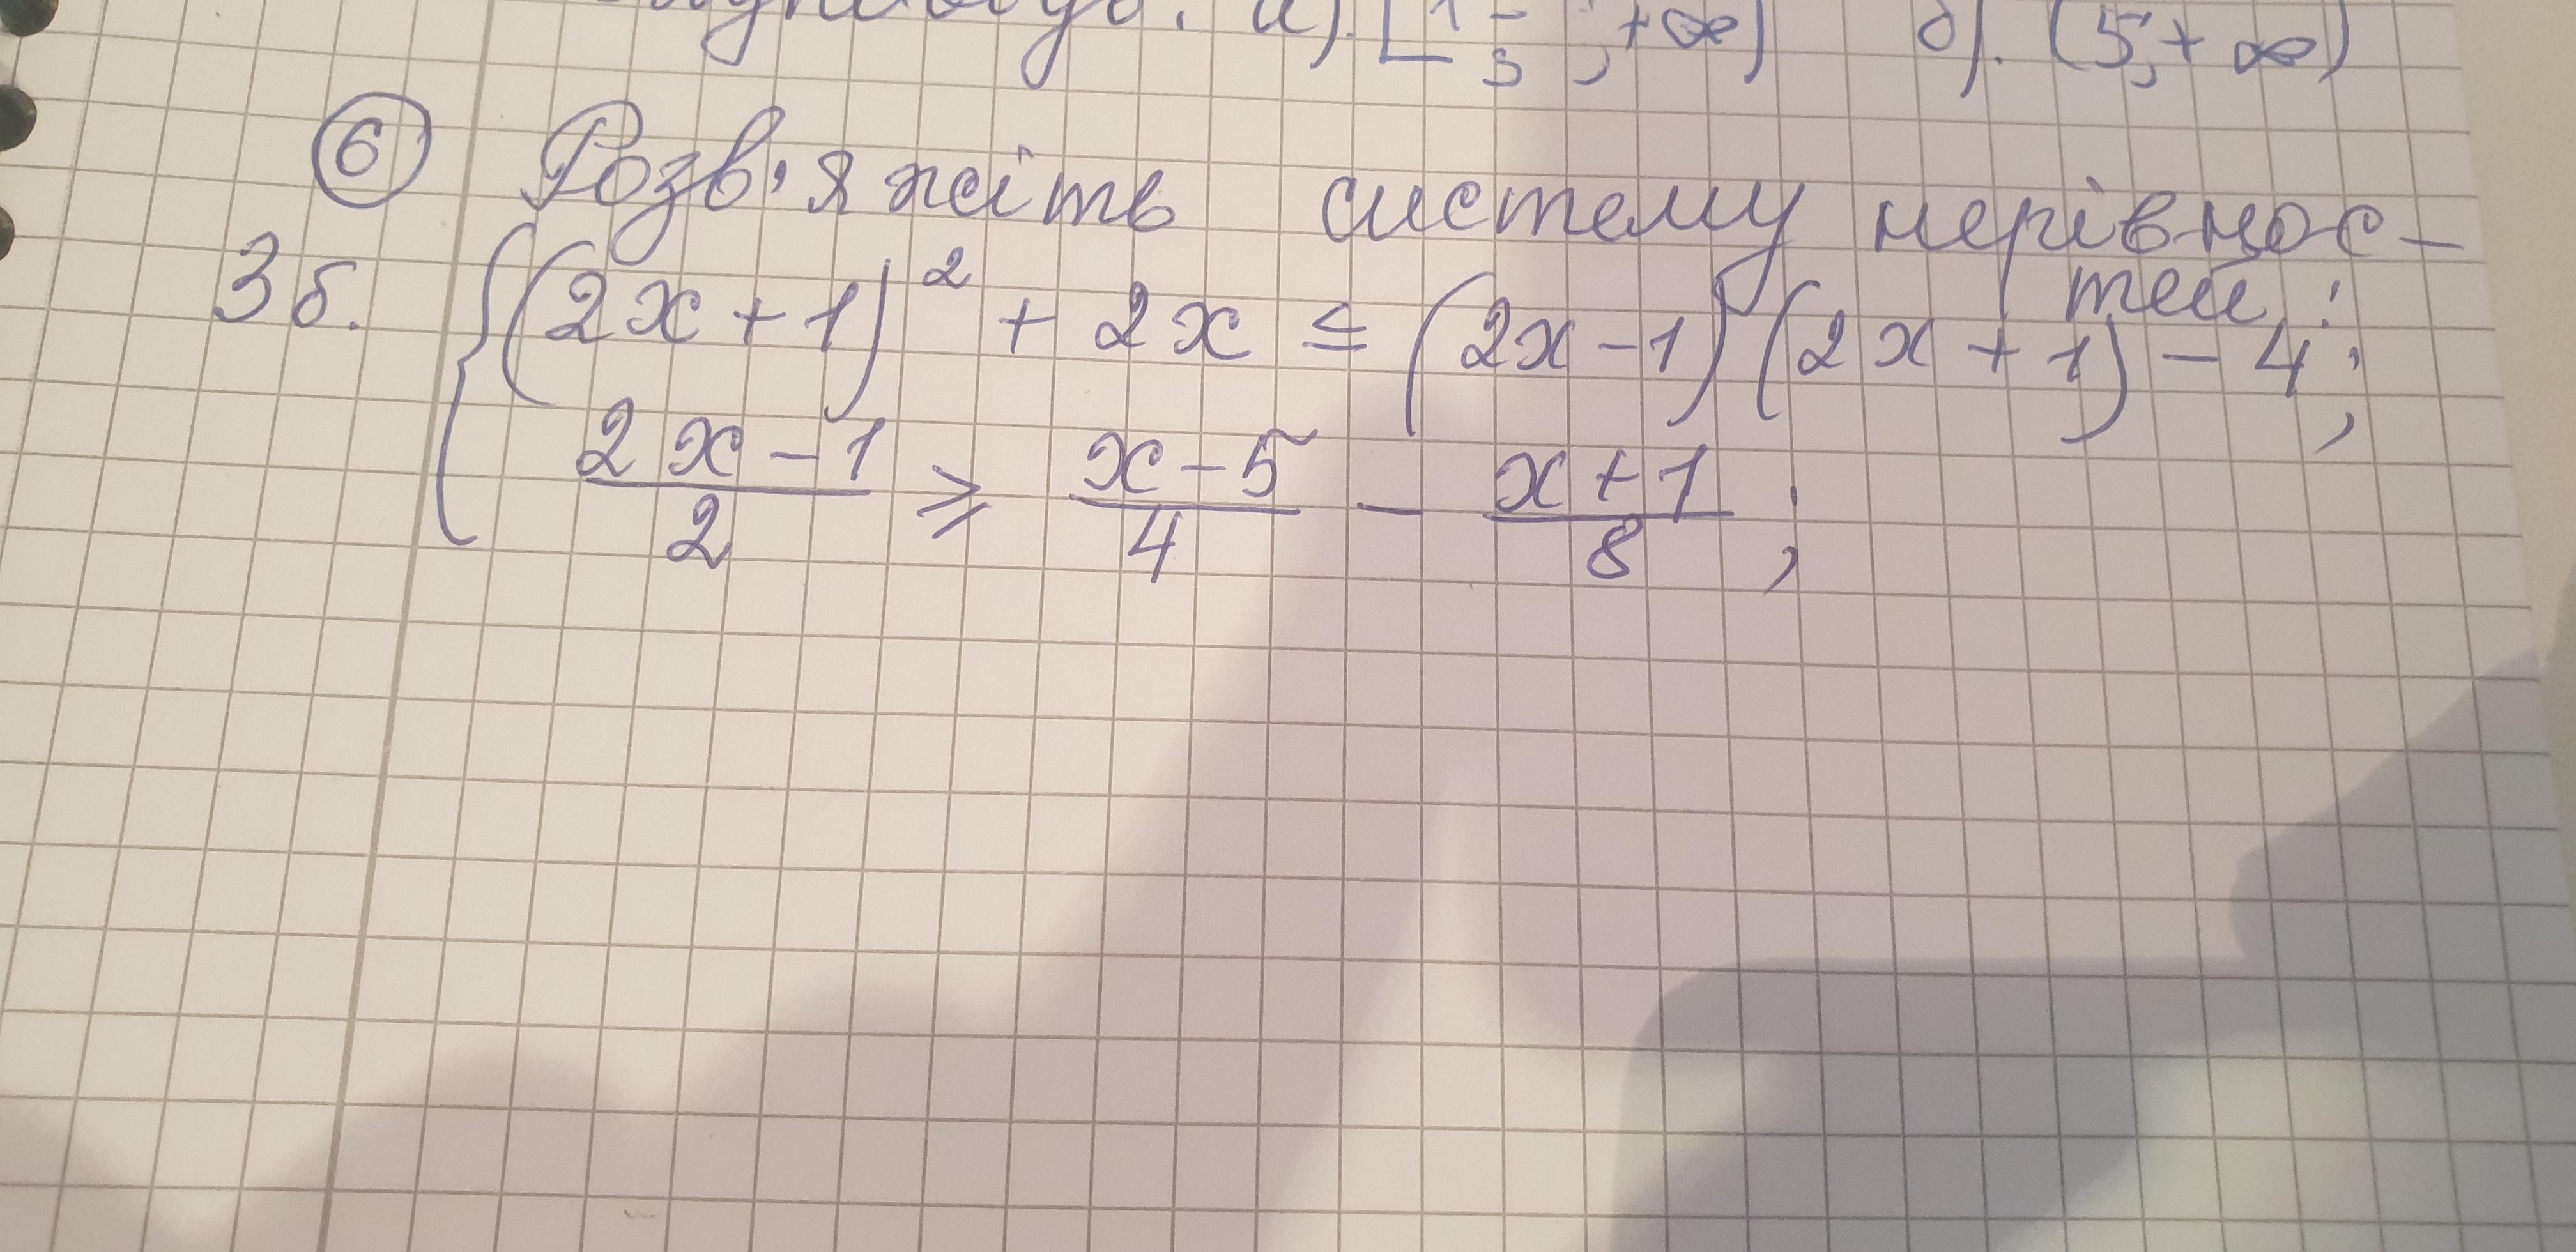 а). [1 1/3; +∞) б). (5; +∞)
⑥ Розв'яжіть систему нерівнос-
тей:
3б. { (2x+1)² + 2x ≤ (2x-1)(2x+1) - 4;
(2x-1)/2 ≥ (x-5)/4 - (x+1)/8;